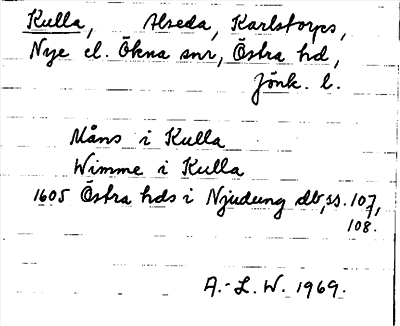 Kulla, Alseda, Karlstorps,
Nye el. Ökna snr, Östra hd,
Jönk. l.
Måns i Kulla
Wimme i Kulla
1605 Östra hds i Njudung db, ss. 107,
108.
A.-L. W. 1969.